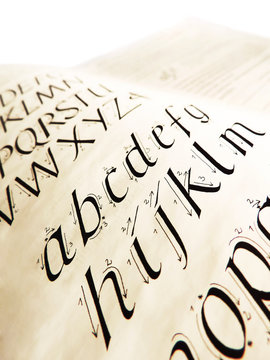 DEF
KLMN
PQRST
VWXYZ
abcdefg
hijklm
nopq